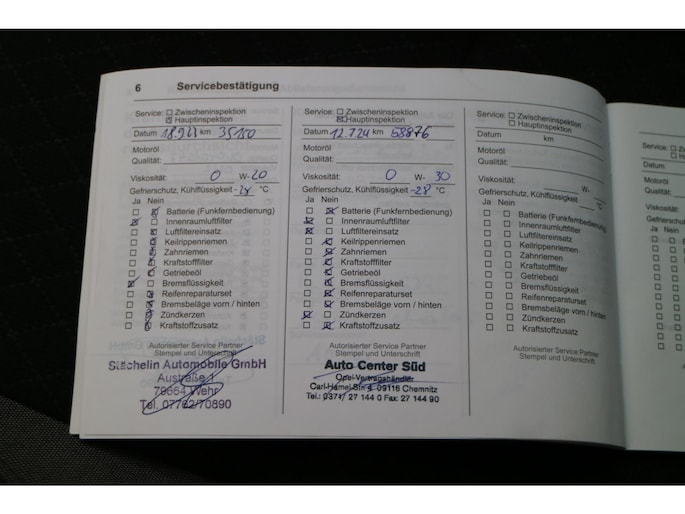 6 Servicebestätigung
Service: ☐ Zwischeninspektion
☒ Hauptinspektion
Datum km 35150
Motoröl
Qualität:
Viskosität: 0 W-20
Gefrierschutz, Kühlflüssigkeit °C
Ja Nein
Batterie (Funkfernbedienung)
Innenraumluftfilter
Luftfiltereinsatz
Keilrippenriemen
Zahnriemen
Kraftstofffilter
Getriebeöl
Bremsflüssigkeit
Reifenreparaturset
Bremsbeläge vorn / hinten
Zündkerzen
Kraftstoffzusatz
Autorisierter Service Partner
Stempel und Unterschrift
Stächelin Automobile GmbH
Austraße 1
79664 Wehr
Tel. 07762/70890
Service: ☐ Zwischeninspektion
☒ Hauptinspektion
Datum 12.7.24 km 58876
Motoröl
Qualität:
Viskosität: 0 W-30
Gefrierschutz, Kühlflüssigkeit -28 °C
Ja Nein
Batterie (Funkfernbedienung)
Innenraumluftfilter
Luftfiltereinsatz
Keilrippenriemen
Zahnriemen
Kraftstofffilter
Getriebeöl
Bremsflüssigkeit
Reifenreparaturset
Bremsbeläge vorn / hinten
Zündkerzen
Kraftstoffzusatz
Autorisierter Service Partner
Stempel und Unterschrift
Auto Center Süd
Opel-Vertragshändler
Carl-Hamel-Str. 4 09116 Chemnitz
Tel.: 0371/ 27 144 0 Fax: 27 144 90
Service: ☐ Zwischeninspektion
☐ Hauptinspektion
Datum km
Motoröl
Qualität:
Viskosität: W-
Gefrierschutz, Kühlflüssigkeit °C
Ja Nein
Batterie (Funkfernbedienung)
Innenraumluftfilter
Luftfiltereinsatz
Keilrippenriemen
Zahnriemen
Kraftstofffilter
Getriebeöl
Bremsflüssigkeit
Reifenreparaturset
Bremsbeläge vorn / hinten
Zündkerzen
Kraftstoffzusatz
Autorisierter Service Partner
Stempel und Unterschrift
Service:
Datum
Motoröl
Qualität:
Viskosität:
Ja Nein